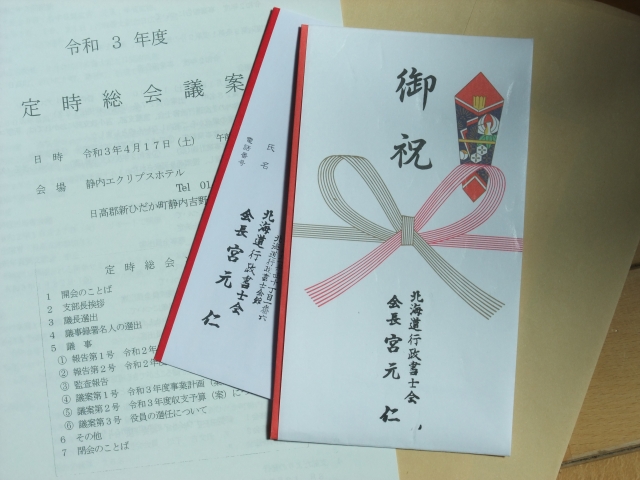 令和 3 年度
定 時 総 会 議 案
日 時 令和3年4月17日(土) 午前
会 場 静内エクリプスホテル
Tel 01
日高郡新ひだか町静内吉野
定 時 総 会
1 開会のことば
2 支部長挨拶
3 議長選出
4 議事録署名人の選出
5 議 事
① 報告第1号 令和2年
② 報告第2号 令和2年
③ 監査報告
④ 議案第1号 令和3年度事業計画(案
⑤ 議案第2号 令和3年度収支予算(案)に
⑥ 議案第3号 役員の選任について
6 その他
7 閉会のことば
氏 名
電話番号
北海道行政書士会
会長 宮 元 仁
御祝
北海道行政書士会
会長 宮 元 仁